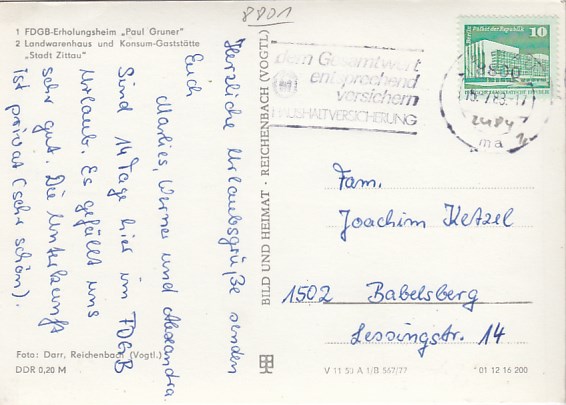 8801
1 FDGB-Erholungsheim „Paul Gruner"
2 Landwarenhaus und Konsum-Gaststätte
„Stadt Zittau"
Herzliche Urlaubsgrüße senden
Euch
Marlies, Werner und Alexandra
Sind 14 Tage hier im FDGB
Urlaub. Es gefällt uns
sehr gut. Die Unterkunft
ist privat (sehr schön).
Foto: Darr, Reichenbach (Vogtl.)
DDR 0,20 M
BILD UND HEIMAT · REICHENBACH (VOGTL)
dem Gesamtwert
entsprechend
versichern
HAUSHALTVERSICHERUNG
Berlin, Palast der Republik
10
ma
Fam.
Joachim Ketzel
1502 Babelsberg
Lessingstr. 14
V 11 50 A 1/B 567/77
01 12 16 200